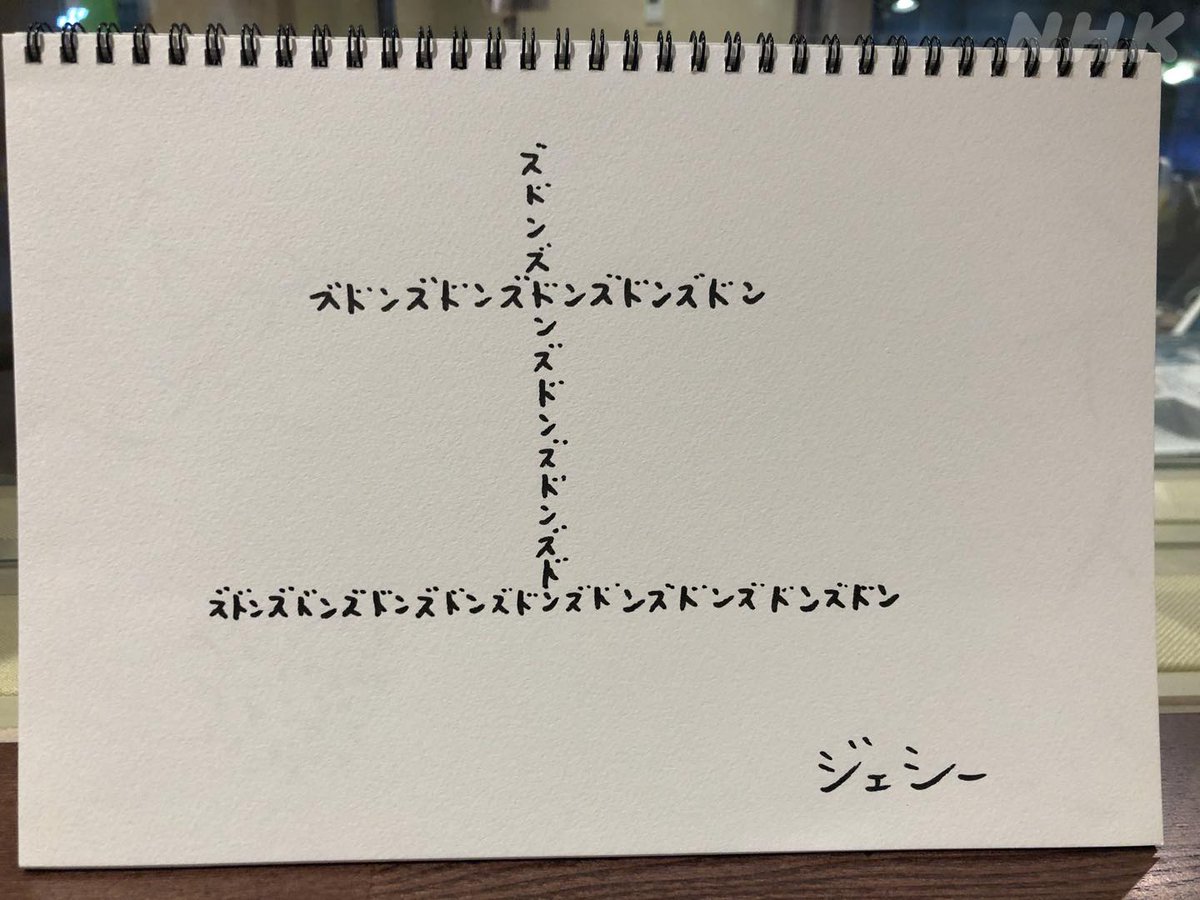 NHK
ズドンズドンズドンズドンズドン
ズドンズドンズドンズドンズドン
ズドンズドンズドンズドンズドンズドンズドンズドンズドン
ジェシー